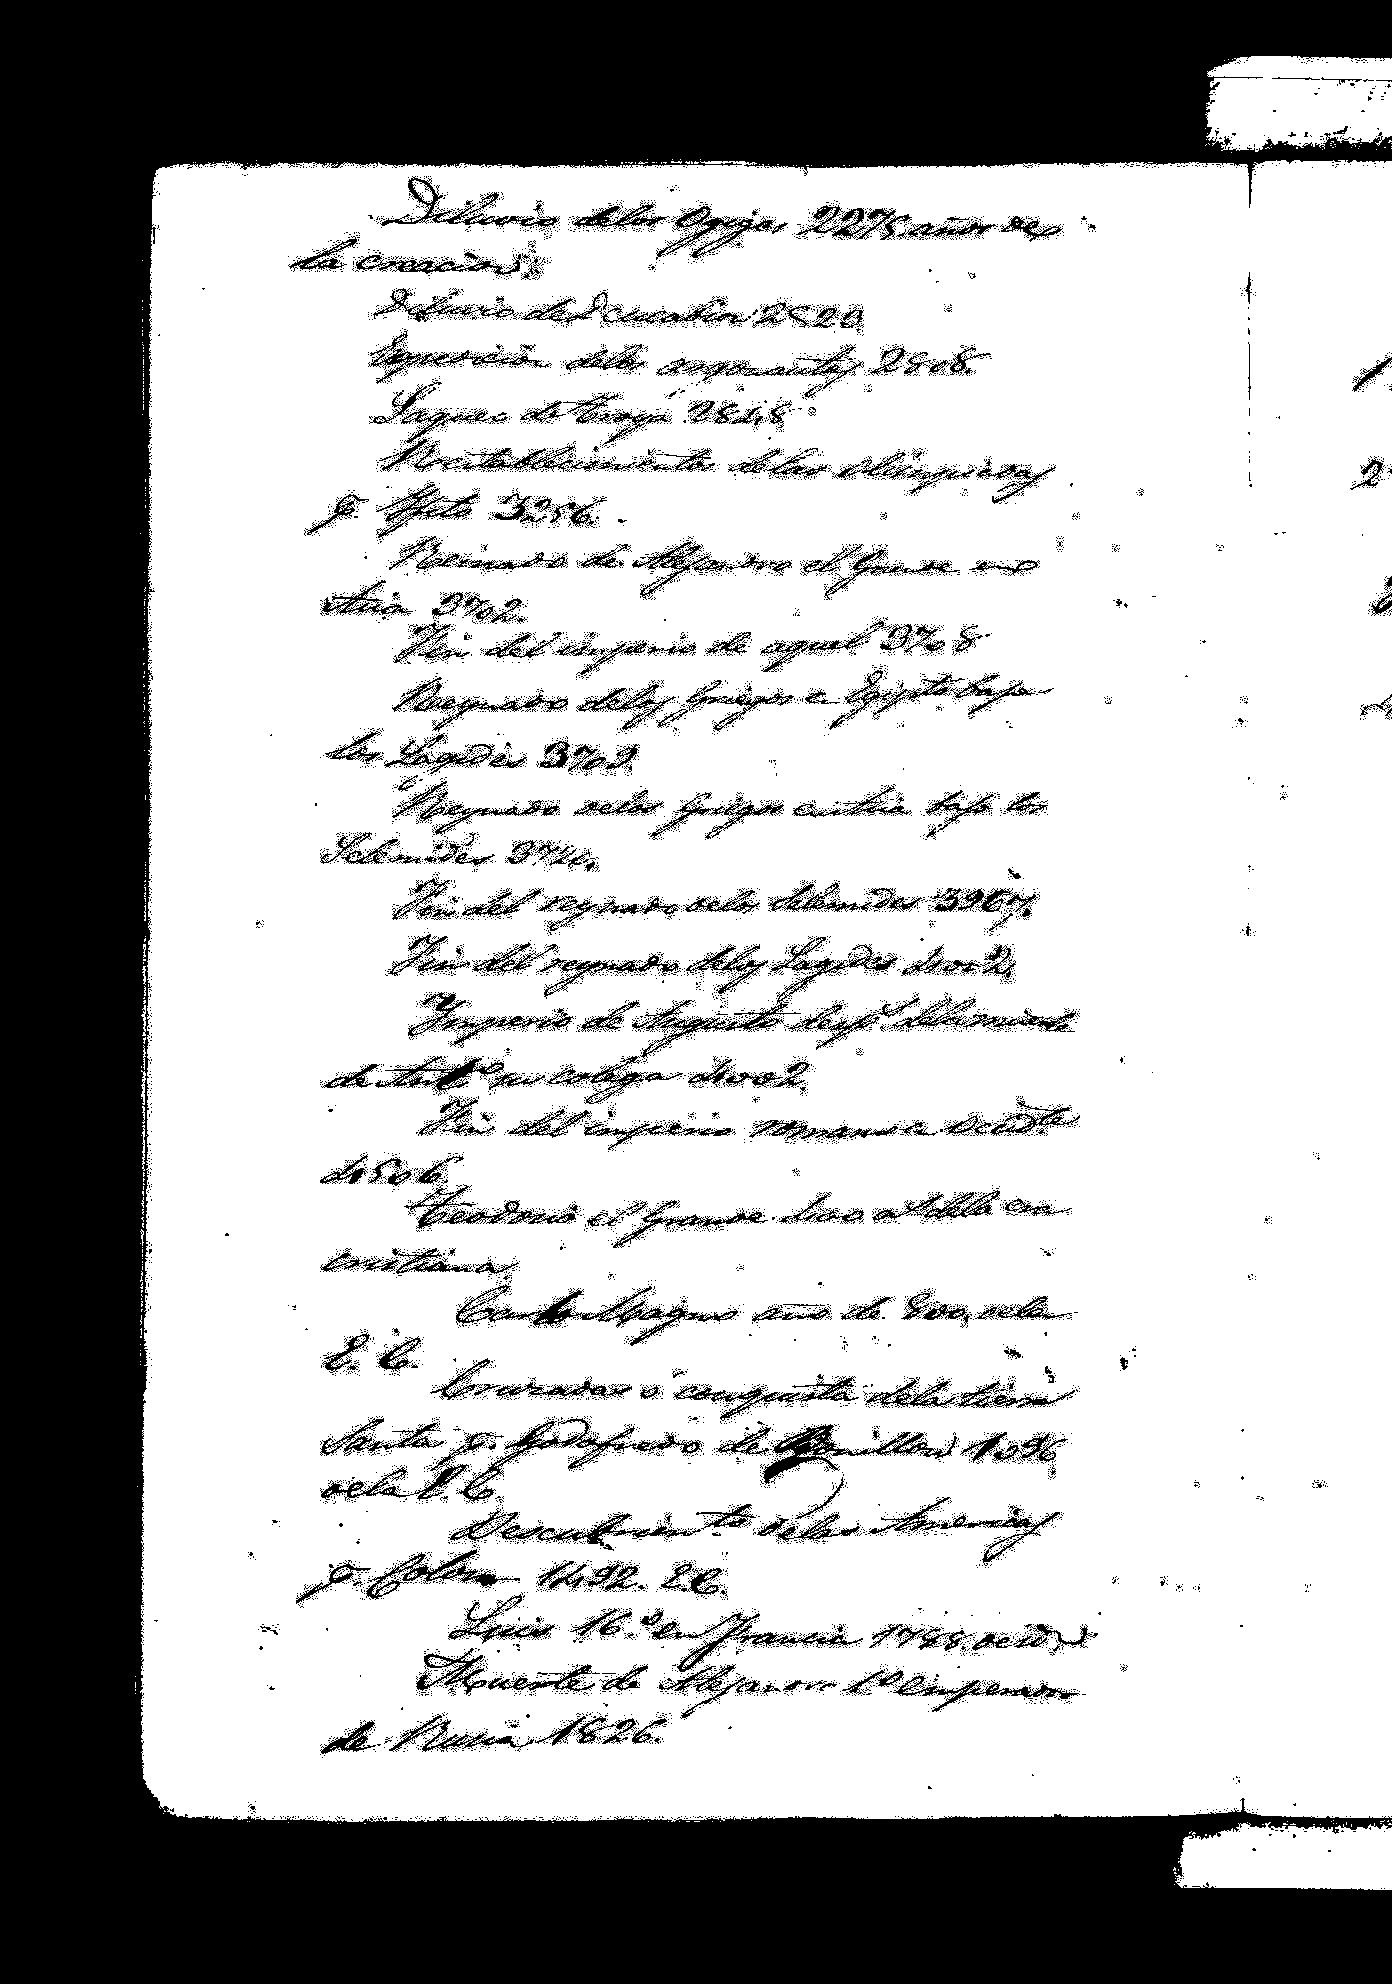 Diluvio delos Ogyges 2275 años de
la creacion
Diluvio de Deucalion 2520
Espedicion delos argonautas 2808.
Saqueo de Troya 2848
Reestablecimiento delas olimpicas
p. Yfito 3256.
Reinado de Alejandro el Grande en
Asia 3702.
Fin del imperio de aquel 3708
Reynado delos Griegos en Egipto bajo
los Lagides 3702.
Reynado delos Griegos en Asia bajo los
Seleucides
Fin del reynado delos Seleucides 3967.
Fin del reynado delos Lagides 4002.
Ymperio de Augusto desp.s dela muerte
de Ant.o su colega 4002.
Fin del imperio romano en Occid.te
4506.
Teodosio el Grande dela era
cristiana.
Carlo Magno año de 800, dela
E. C.
Cruzadas ó conquista dela tierra
Santa p. Godofredo de Bouillon 1096
dela E. C.
Descubrimien.to delas Americas
p. Colon 1492. E.C.
Luis 16.o en Francia
Muerte de Alejandro 1.o emperador
de Rusia 1826.
1.
2